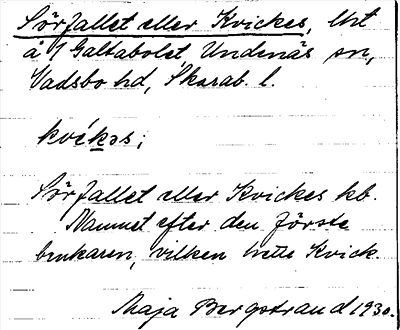 Sörfallet eller Kvickes, lht
å 1 Galtabolet, Undenäs sn,
Vadsbo hd, Skarab. l.
kvékəs;
Sörfallet eller Kvickes kb.
Namnet efter den förste
brukaren, vilken hette Kvick.
Maja Bergstrand 1930.